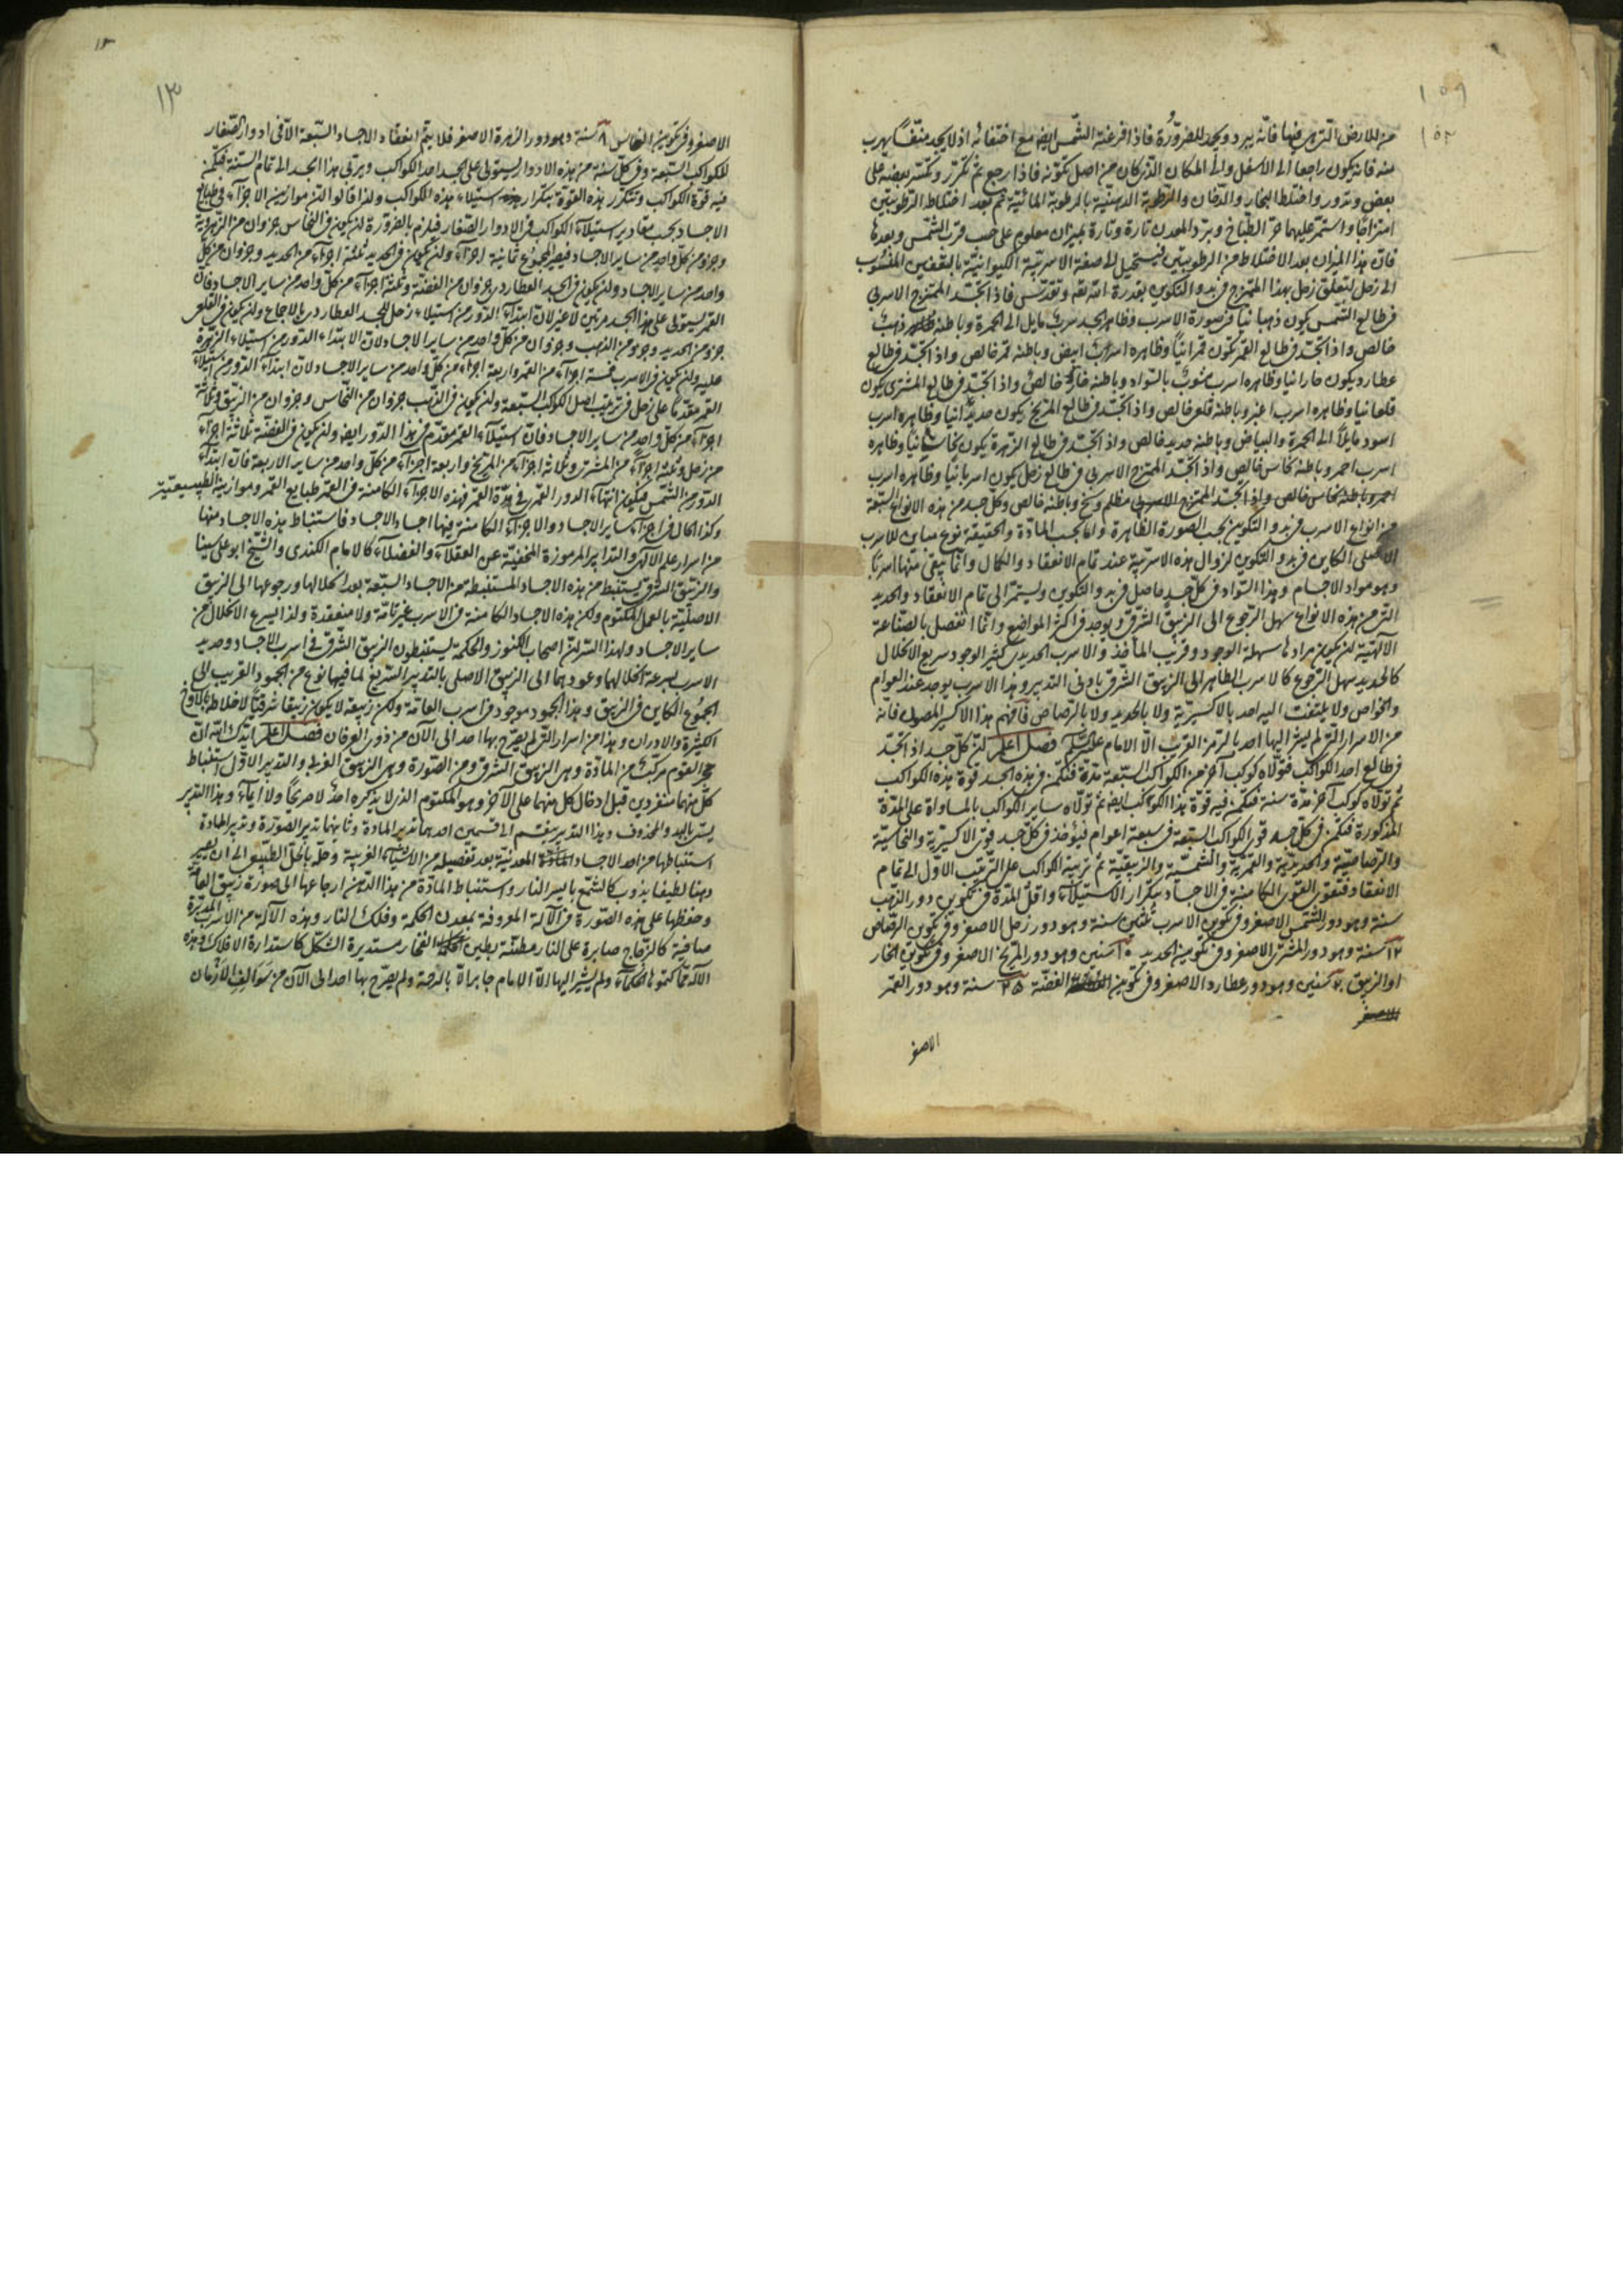 ١٥٩
١٥٢
من الارض التى هى فيها فانه يبرد ويجمد للضرورة فاذا افرغته الشمس ايضا مع اختفائه اذ لا يجد منفسا يهرب
منه فانه يكون راجعا الى الاسفل والى المكان الذى كان من اصل تكونه فاذا رجع ثم تكرر وتكسر بعضه على
بعض وتدور واختلط البخار والدخان والرطوبة الدهنية بالرطوبة المائية ثم بعد اختلاط الرطوبتين
امتزاجا واستمر عليهما حر الطباخ وبرد المعدن تارة وتارة بميزان معلوم على حسب قرب الشمس وبعدها
فان هذا الميزان بعد الاختلاط من الرطوبتين فيستحيل الى صفة الاسربية الكيوانية بالتعفين المنسوب
الى زحل لتعلق زحل بهذا الممتزج فى بدو التكوين بقدرة الله تعه وتقدس فاذا تجسد الممتزج الاسربى
فى طالع الشمس يكون ذهبانيا فى صورة الاسرب وظاهر الجسد سرب مايل الى الحمرة وباطنه ذهب
خالص واذا تجسد فى طالع القمر تكون قمرانيا وظاهره اسرب ابيض وباطنه قمر خالص واذا تجسد فى طالع
عطارد يكون خارانيا وظاهره اسرب مشوب بالسواد وباطنه خار خالص واذا تجسد فى طالع المشترى يكون
قلعانيا وظاهره اسرب اغبر وباطنه قلعى خالص واذا تجسد فى طالع المريخ يكون حديدانيا وظاهره اسرب
اسود مايلا الى الحمرة والبياض وباطنه حديد خالص واذا تجسد فى طالع الزهرة يكون نحاسانيا وظاهره
اسرب احمر وباطنه نحاس خالص واذا تجسد الممتزج الاسربى فى طالع زحل يكون اسربانيا وظاهره اسرب
مظلم وسخ وباطنه خالص وكل جسد من هذه الانواع السبعة
من انواع الاسرب فى بدو التكوين بحسب الصورة الظاهرة واما بحسب المادة والحقيقة نوع مباين للاسرب
الاصلى الكاين فى بدو التكوين لزوال هذه الاسربية عند تمام الانعقاد والكمال وانما يبقى منها اسربا
وهو مواد الاجسام وهذا السواد فى كل جسد حاصل فى بدو التكوين ويستمر الى تمام الانعقاد والحديد
التى من هذه الانواع سهل الرجوع الى الزيبق الشرقى ويوجد فى اكثر المواضع وانما انفصل بالصناعة
الآلهية لن يكون مرادها سهلة الوجود وقريب المأخذ والاسرب الحديدى كثير الوجود سريع الانحلال
كالحديد سهل الرجوع كالاسرب الظاهر الى الزيبق الشرقى بادنى التدبير وهذا الاسرب يوجد عند العوام
والخواص ولا يلتفت اليه احد بالاكسيرية ولا بالحديد ولا بالرصاص فافهم هذا الاكسير المصون فانه
من الاسرار التى لم يشر اليها احد بالرمز القريب الا الامام على فصل اعلم لن كل جسد اذا تجسد
فى طالع احد الكواكب فتولاه كوكب آخر من الكواكب السبعة مدة فتكمن فى هذه الجسد قوة هذه الكواكب
ثم تولاه كوكب آخر مدة سنة فتكمن فيه قوة هذا الكواكب ايضا ثم تولاه ساير الكواكب بالمساواة على المدة
المذكورة فتكمن فى كل جسد قوى الكواكب السبعة فى سبعة اعوام فيؤخذ فى كل جسد قوى الاكسيرية والنحاسية
والرصاصية والحديدية والقمرية والشمسية والزيبقية ثم تربية الكواكب على الترتيب الاول الى تمام
الانعقاد فتقوى القوى الكامنة فى الاجساد بتكرار الاستيلاء واقل المدة فى تكوين دور الذهب
سنة وهو دور الشمس الاصغر وفى تكوين الاسرب ثلثين سنة وهو دور زحل الاصغر وفى تكوين الرصاص
١٢ سنة وهو دور المشترى الاصغر وفى تكوين الحديد ١٥ سنين وهو دور المريخ الاصغر وفى تكوين الخار
او الزيبق ٢٠ سنين وهو دور عطارد الاصغر وفى تكوين الفضة ٢٥ سنة وهو دور القمر
الاصغر
الاصغر
١٣
١٣
الاصغر وفى تكوين النحاس ٨ سنة وهو دور الزهرة الاصغر فلا يتم انعقاد الاجساد السبعة الا فى ادوار الصغار
للكواكب السبعة وفى كل سنة من هذه الادوار يستولى على الجسد احد الكواكب ويربى هذا الجسد الى تمام السنة فيكمن
فيه قوة الكواكب وتتكرر هذه القوة بتكرار استيلاء هذه الكواكب ولذا قالوا لن موازين الاجزاء فى طبايع
الاجساد بحسب مقادير استيلاء الكواكب فى الادوار الصغار فيلزم بالضرورة لن يكون فى النحاس جزوان من الزهروية
وجزو من كل واحد من ساير الاجساد فيصير المجموع ثمانية اجزاء ولن يكون فى الحديد ثلثة اجزاء من الحديد وجزوان من كل
واحد من ساير الاجساد ولن يكون فى الجسد العطاردى جزوان من الفضة وثلثة اجزاء من كل واحد من ساير الاجساد فان
القمر يستولى على هذا الجسد مرتين لا غير لان ابتداء الدور من استيلاء زحل للجسد العطاردى بالاجماع ولن يكون فى القلعى
جزو من الحديد وجزو من الذهب وجزوان من كل واحد من ساير الاجساد لان الابتداء الدور من استيلاء الزهرة
عليه ولن يكون فى الاسرب خمسة اجزاء من القمر واربعة اجزاء من كل واحد من ساير الاجساد لان ابتداء الدور من استيلاء
القمر مقدما على زحل فى ترتيب اصل الكوكب السبعة ولن يكون فى الذهب جزوان من النحاس وجزوان من الزيبق وثلاثة
اجزاء من كل واحد من ساير الاجساد فان استيلاء القمر مقدم فى هذا الدور ايضا ولن يكون فى الفضة ثلاثة اجزاء
من زحل وثلثة اجزاء من المشترى وثلاثة اجزاء من المريخ واربعة اجزاء من كل واحد من ساير الاربعة فان ابتداء
الدور من الشمس فيكون انتهاء الدور القمر فى مدة القمر فهذه الاجزاء الكامنة فى القمر طبايع القمر وموازينه الطبيعية
وكذا الحال فى اجزاء ساير الاجساد والاجزاء الكامنة فيها اجساد الاجساد فاستنباط هذه الاجساد منها
من اسرار علم الآلهى والتدابير المرموزة المخفية عن العقلاء والفضلاء كالامام الكندى والشيخ ابو على سينا
والزيبق الشرقى يستنبط من هذه الاجساد المستنبطة من الاجساد السبعة بعد انحلالها ورجوعها الى الزيبق
الاصلية بالعمل المكتوم ولكن هذه الاجساد الكامنة فى الاسرب غير تامة ولا منعقدة ولذا اسرع الانحلال من
ساير الاجساد ولهذا السر لن اصحاب الكنوز والحكمة يستنبطون الزيبق الشرقى فى اسرب الاجساد وحديد
الاسرب لسرعة انحلالهما وعودهما الى الزيبق الاصلى بالتدبير السريع لما فيها نوع من الجمود القريب الى
الجموع الكاين فى الزيبق وهذا الجمود موجود فى اسرب العامة ولكن زيبقه لا يكون زيبقا شرقيا لاختلاطه بالاوساخ
الكثيرة والادران وهذا من اسرار التى لم يصرح بها احد الى الآن من ذوى العرفان فصل اعلم ايدك الله ان
حجر القوم مركب من المادة وهى الزيبق الشرقى ومن الصورة وهى الزيبق الغربى والتدبير الاول استنباط
كل منهما منفردين قبل ادخال كل منهما على الآخر وهو المكتوم الذى لا يذكره احد لا صريحا ولا ايماء وهذا التدبير
يسمى بالبد والمحذوف وهذا التدبير ينقسم الى قسمين احدهما تدبير المادة وثانيهما تدبير الصورة وتدبير المادة
استنباطها من احد الاجساد المعدنية بعد تفصيله من الاشياء الغريبة وحله بالحل الطبيعى الى ان يصير
دهنا لطيفا يذوب كالشمع بايسر النار واستنباط المادة من هذا الدهن ارجاعها الى صورة زيبق العامة
وحفظها على هذه الصورة فى الآلة المعروفة بمعدن الحكمة وفلك النار وهذه الآلة من الاسرب المدبرة
صافية كالزجاج صابرة على النار مطينة بطين الحكمة الفخار مستديرة الشكل كاستدارة الافلاك وهذه
الآلة مما كتموها الحكماء ولم يشير اليها الا الامام جابر الا بالرحمة ولم يصرح بها احد الى الآن من سوالف الازمان